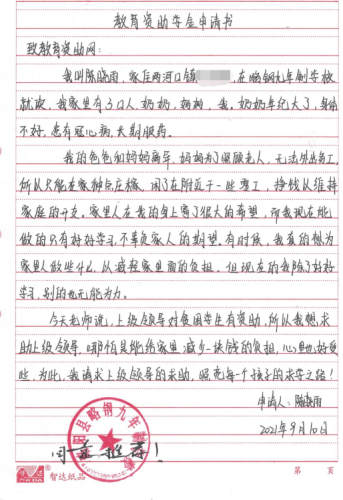 教育资助学金申请书
致教育资助网：
我叫陈晓雨，家住两河口镇，在略钢九年制学校
就读，我家里有3口人，奶奶，妈妈，我。奶奶年纪大了，身体
不好，患有冠心病，长期服药。
我的爸爸和妈妈离异，妈妈为了照顾老人，无法外出务工，
所以只能在家种点庄稼，闲了在附近干一些零工，挣钱以维持
家庭的开支。家里人在我的身上寄了很大的希望，而我现在能
做的只有好好学习，不辜负家人的期望。有时候，我真的想为
家里人做些什么，以减轻家里面的负担，但现在的我除了好好
学习，别的也无能为力。
今天老师说，上级领导对贫困学生有资助，所以我想求
助上级领导，哪怕只能给家里减少一块钱的负担，心里也好受
些，为此，我请求上级领导的求助，照亮每个孩子的求学之路！
申请人：陈晓雨
2021年9月10日
阳县略钢九年制
同意推荐！
智达纸品
第 页